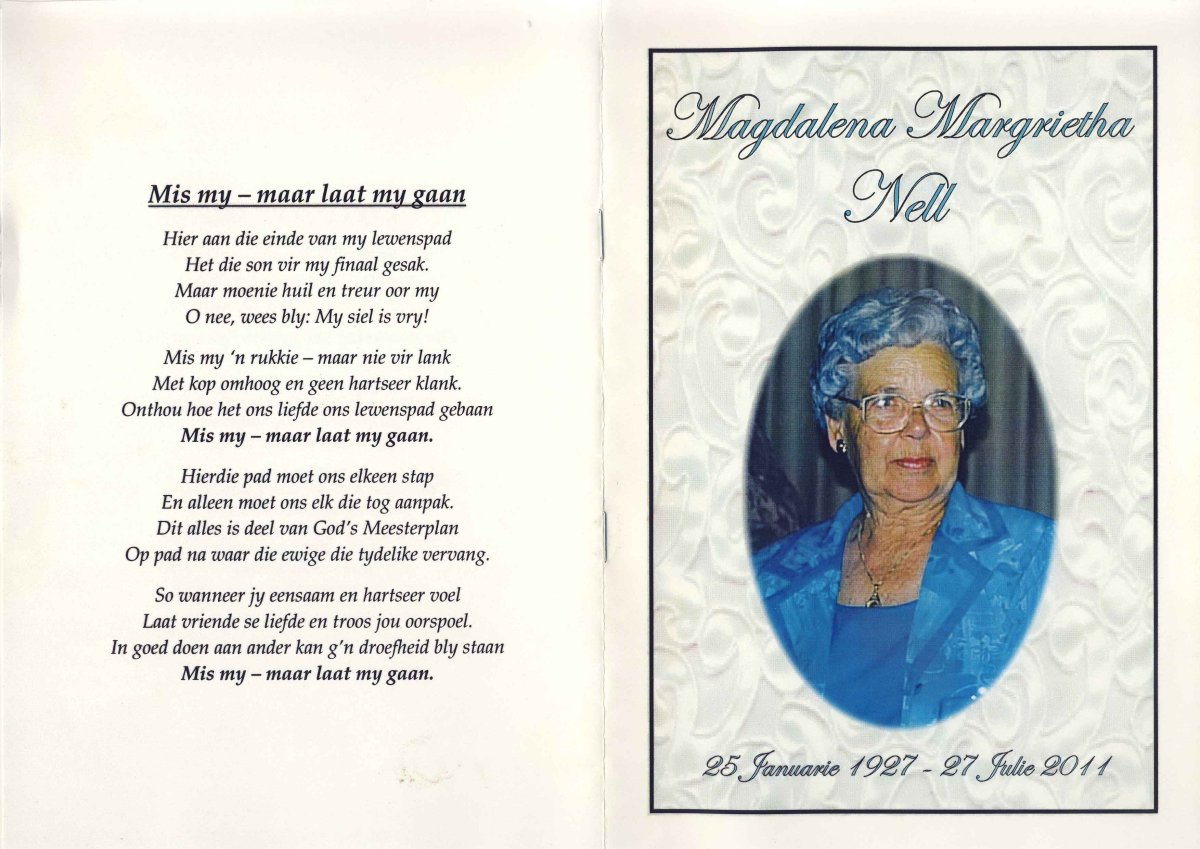 Mis my – maar laat my gaan
Hier aan die einde van my lewenspad
Het die son vir my finaal gesak.
Maar moenie huil en treur oor my
O nee, wees bly: My siel is vry!
Mis my ‘n rukkie – maar nie vir lank
Met kop omhoog en geen hartseer klank.
Onthou hoe het ons liefde ons lewenspad gebaan
Mis my – maar laat my gaan.
Hierdie pad moet ons elkeen stap
En alleen moet ons elk die tog aanpak.
Dit alles is deel van God’s Meesterplan
Op pad na waar die ewige die tydelike vervang.
So wanneer jy eensaam en hartseer voel
Laat vriende se liefde en troos jou oorspoel.
In goed doen aan ander kan g’n droefheid bly staan
Mis my – maar laat my gaan.
Magdalena Margrietha
Nell
25 Januarie 1927 - 27 Julie 2011